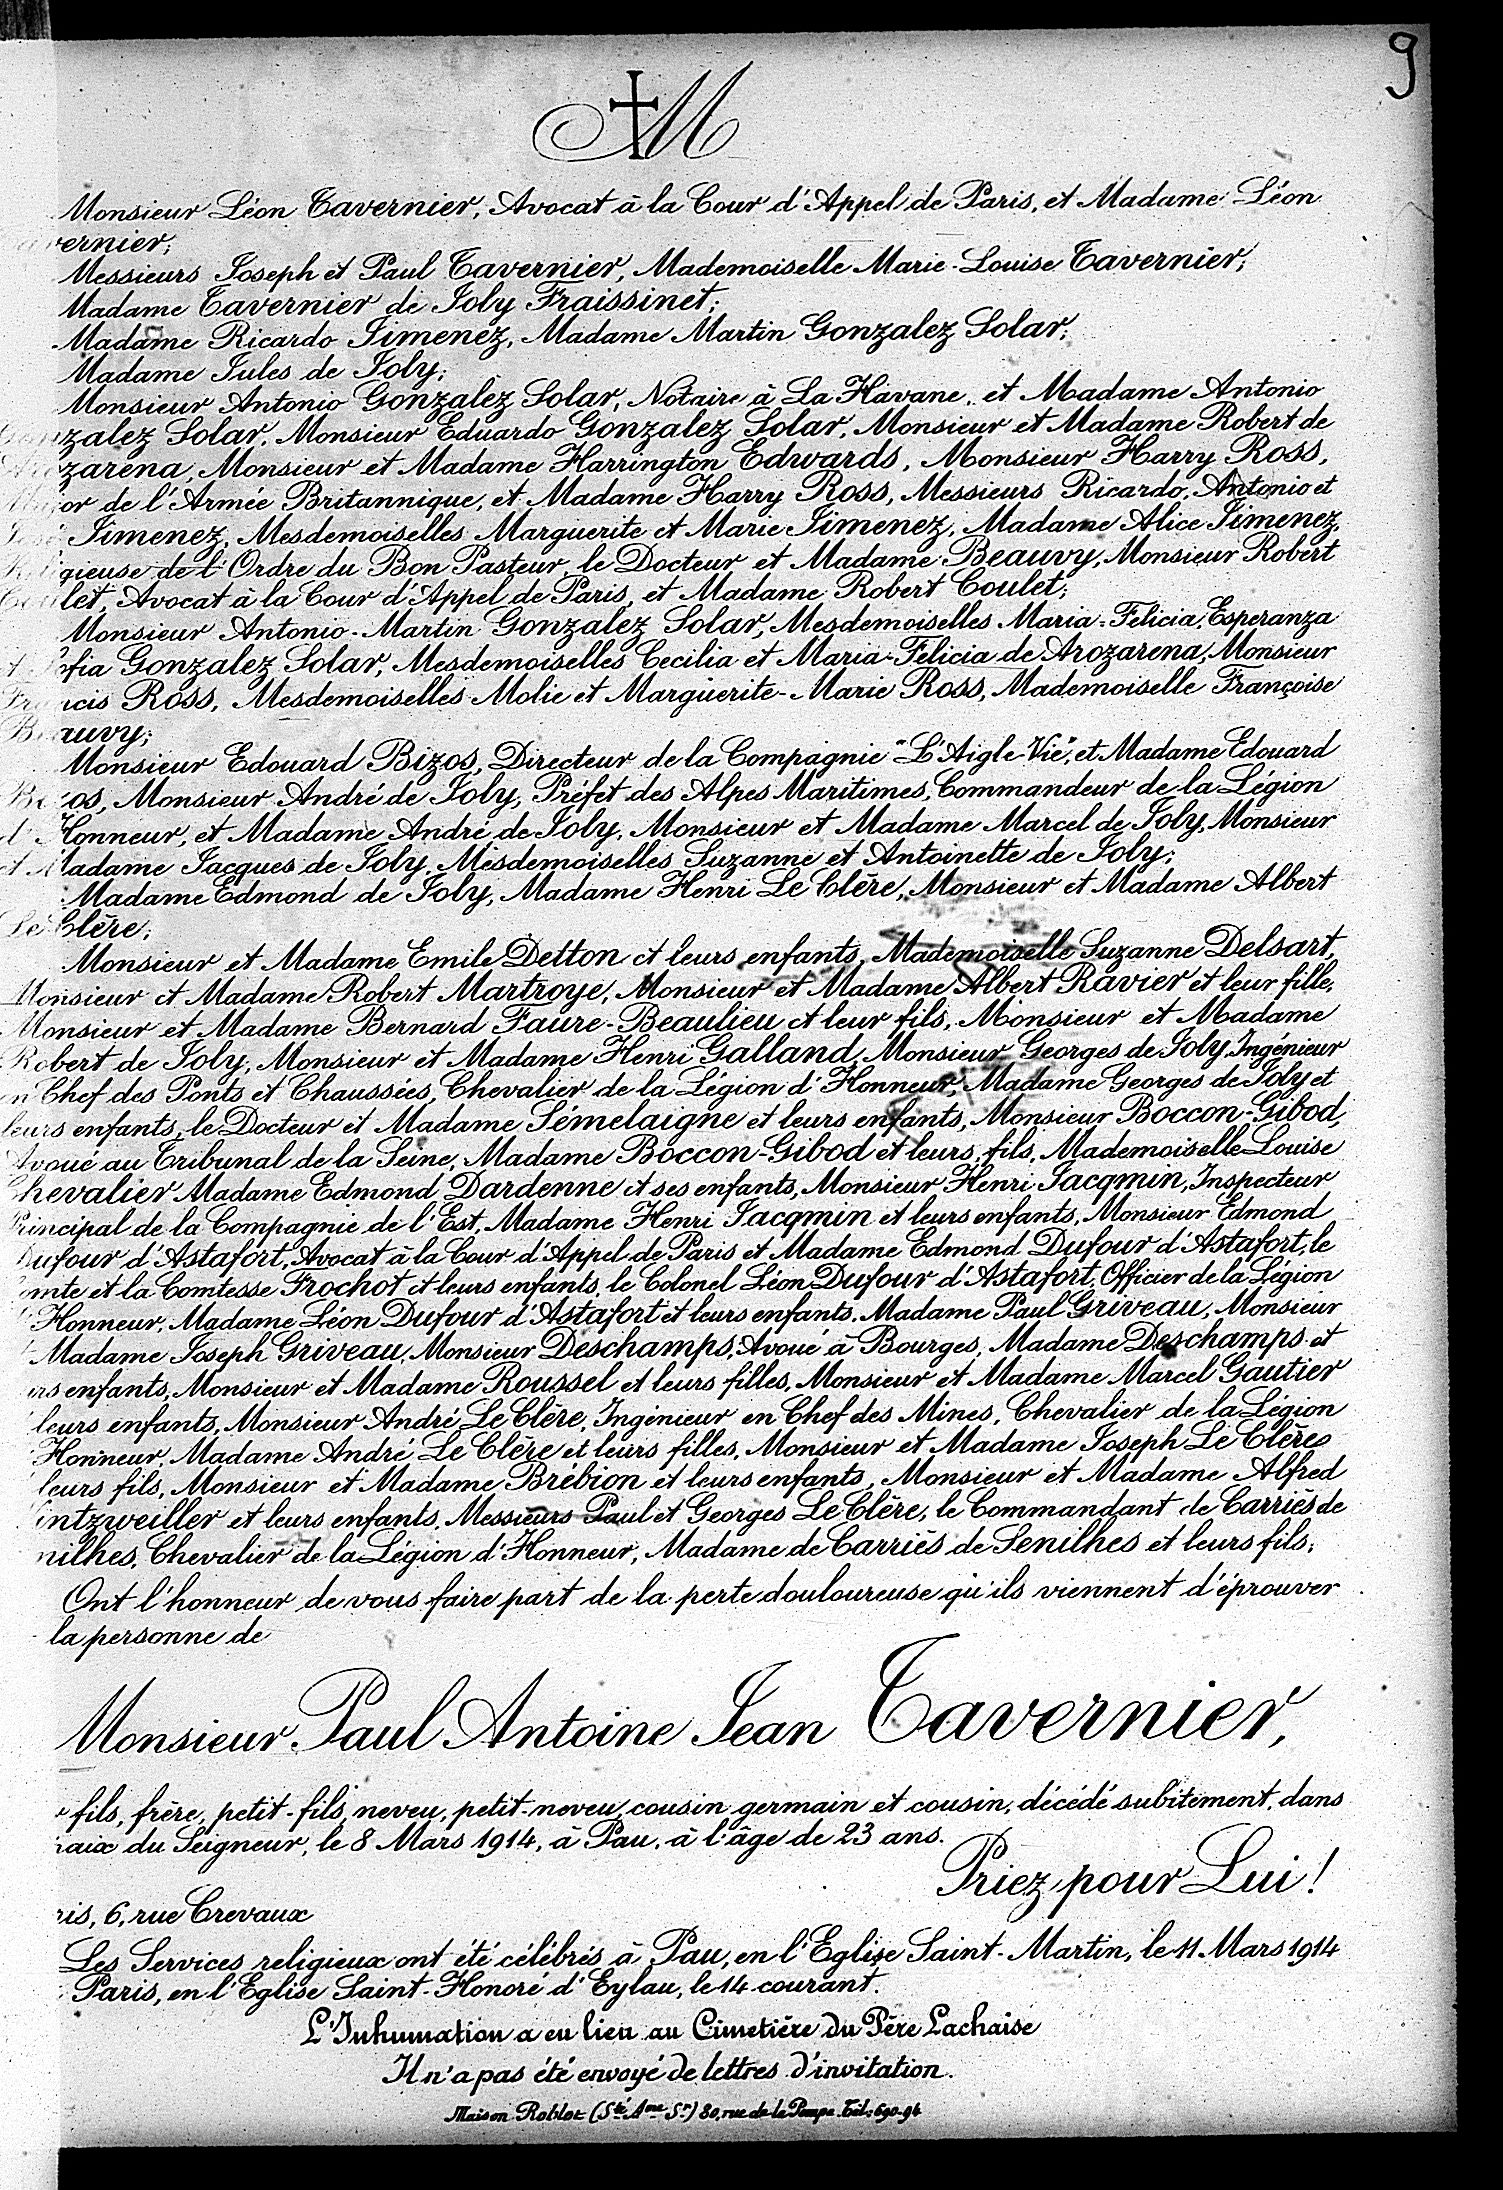 9
M
Monsieur Léon Tavernier, Avocat à la Cour d'Appel de Paris, et Madame Léon
vernier;
Messieurs Joseph et Paul Tavernier, Mademoiselle Marie-Louise Tavernier;
Madame Tavernier de Joly Fraissinet;
Madame Ricardo Jimenez, Madame Martin Gonzalez Solar;
Madame Jules de Joly;
Monsieur Antonio Gonzalez Solar, Notaire à La Havane, et Madame Antonio
Gonzalez Solar, Monsieur Eduardo Gonzalez Solar, Monsieur et Madame Robert de
Arozarena, Monsieur et Madame Harrington Edwards, Monsieur Harry Ross,
Major de l'Armée Britannique, et Madame Harry Ross, Messieurs Ricardo, Antonio et
José Jimenez, Mesdemoiselles Marguerite et Marie Jimenez, Madame Alice Jimenez,
Religieuse de l'Ordre du Bon Pasteur, le Docteur et Madame Beauvy, Monsieur Robert
Coulet, Avocat à la Cour d'Appel de Paris, et Madame Robert Coulet;
Monsieur Antonio-Martin Gonzalez Solar, Mesdemoiselles Maria-Felicia, Esperanza
et Sofia Gonzalez Solar, Mesdemoiselles Cecilia et Maria-Felicia de Arozarena, Monsieur
Francis Ross, Mesdemoiselles Molie et Marguerite-Marie Ross, Mademoiselle Françoise
Beauvy;
Monsieur Edouard Bizos, Directeur de la Compagnie "L'Aigle-Vie", et Madame Edouard
Bizos, Monsieur André de Joly, Préfet des Alpes Maritimes, Commandeur de la Légion
d'Honneur, et Madame André de Joly, Monsieur et Madame Marcel de Joly, Monsieur
et Madame Jacques de Joly, Mesdemoiselles Suzanne et Antoinette de Joly;
Madame Edmond de Joly, Madame Henri Le Clére, Monsieur et Madame Albert
Le Clére;
Monsieur et Madame Emile Detton et leurs enfants, Mademoiselle Suzanne Delsart,
Monsieur et Madame Robert Martroye, Monsieur et Madame Albert Ravier et leur fille,
Monsieur et Madame Bernard Faure-Beaulieu et leur fils, Monsieur et Madame
Robert de Joly, Monsieur et Madame Henri Galland, Monsieur Georges de Joly, Ingénieur
en Chef des Ponts et Chaussées, Chevalier de la Légion d'Honneur, Madame Georges de Joly et
leurs enfants, le Docteur et Madame Sémelaigne et leurs enfants, Monsieur Boccon-Gibod,
Avoué au Tribunal de la Seine, Madame Boccon-Gibod et leurs fils, Mademoiselle Louise
Chevalier Madame Edmond Dardenne et ses enfants, Monsieur Henri Jacqmin, Inspecteur
Principal de la Compagnie de l'Est, Madame Henri Jacqmin et leurs enfants, Monsieur Edmond
Dufour d'Astafort, Avocat à la Cour d'Appel de Paris et Madame Edmond Dufour d'Astafort, le
omte et la Comtesse Frochot et leurs enfants, le Colonel Léon Dufour d'Astafort, Officier de la Légion
Honneur, Madame Léon Dufour d'Astafort et leurs enfants, Madame Paul Griveau, Monsieur
Madame Joseph Griveau, Monsieur Deschamps, Avoué à Bourges, Madame Deschamps et
urs enfants, Monsieur et Madame Roussel et leurs filles, Monsieur et Madame Marcel Gautier
leurs enfants, Monsieur André Le Clére, Ingénieur en Chef des Mines, Chevalier de la Légion
Honneur, Madame André Le Clére et leurs filles, Monsieur et Madame Joseph Le Clére
leurs fils, Monsieur et Madame Brébion et leurs enfants, Monsieur et Madame Alfred
intzweiller et leurs enfants, Messieurs Paul et Georges Le Clére, le Commandant de Carriés de
nilhes, Chevalier de la Légion d'Honneur, Madame de Carriés de Senilhes et leurs fils;
Ont l'honneur de vous faire part de la perte douloureuse qu'ils viennent d'éprouver
la personne de
Monsieur Paul Antoine Jean Tavernier,
fils, frère, petit-fils, neveu, petit-neveu, cousin germain et cousin, décédé subitement, dans
paix du Seigneur, le 8 Mars 1914, à Pau, à l'âge de 23 ans.
Priez pour Lui!
ris, 6, rue Crevaux
Les Services religieux ont été célébrés à Pau, en l'Eglise Saint-Martin, le 11 Mars 1914
Paris, en l'Eglise Saint-Honoré d'Eylau, le 14 courant.
L'Inhumation a eu lieu au Cimetière du Père Lachaise
Il n'a pas été envoyé de lettres d'invitation.
Maison Roblot (Sté Ame Sr) 80, rue de la Pompe. Tél: 690-94